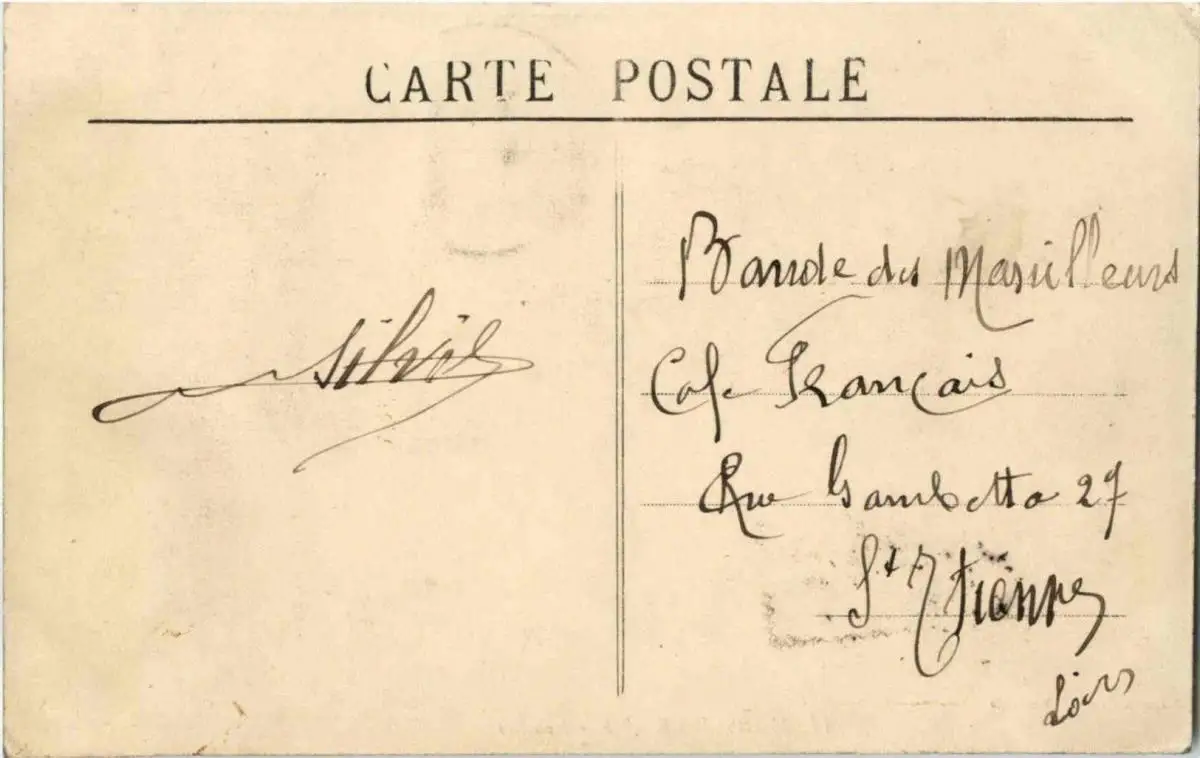 CARTE POSTALE
Silvio
Bande des Marseilleurs
Café Français
Rue Gambetta 27
St Etienne
Loire